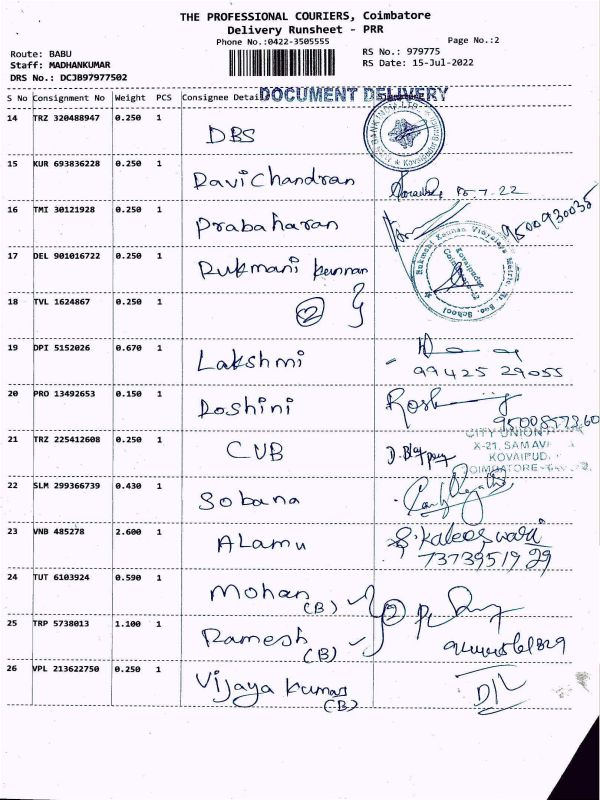 THE PROFESSIONAL COURIERS, Coimbatore
Delivery Runsheet - PRR
Phone No.:0422-3505555
Page No.:2
Route: BABU
Staff: MADHANKUMAR
DRS No.: DCJB97977502
RS No.: 979775
RS Date: 15-Jul-2022
S No Consignment No Weight PCS Consignee Detai DOCUMENT DELIVERY
14 TRZ 320488947 0.250 1 DBS
15 KUR 693836228 0.250 1 Ravi Chandran 15.7.22
16 TMI 30121928 0.250 1 Prabaharan 9500930035
17 DEL 901016722 0.250 1 Rukmani kannan
18 TVL 1624867 0.250 1 2
19 DPI 5152026 0.670 1 Lakshmi
99425 29055
20 PRO 13492653 0.150 1 Roshini
21 TRZ 225412608 0.250 1 CUB
CITY UNION
X-21, SAMAV
KOVAIPUD
COIMBATORE
22 SLM 299366739 0.430 1 Sobana
23 VNB 485278 2.600 1 ALamu S. Kaleeswari
7373951929
24 TUT 6103924 0.590 1 Mohan (B) 2
25 TRP 5738013 1.100 1 Ramesh (B)
26 VPL 213622750 0.250 1 Vijaya kumar (B) D/L